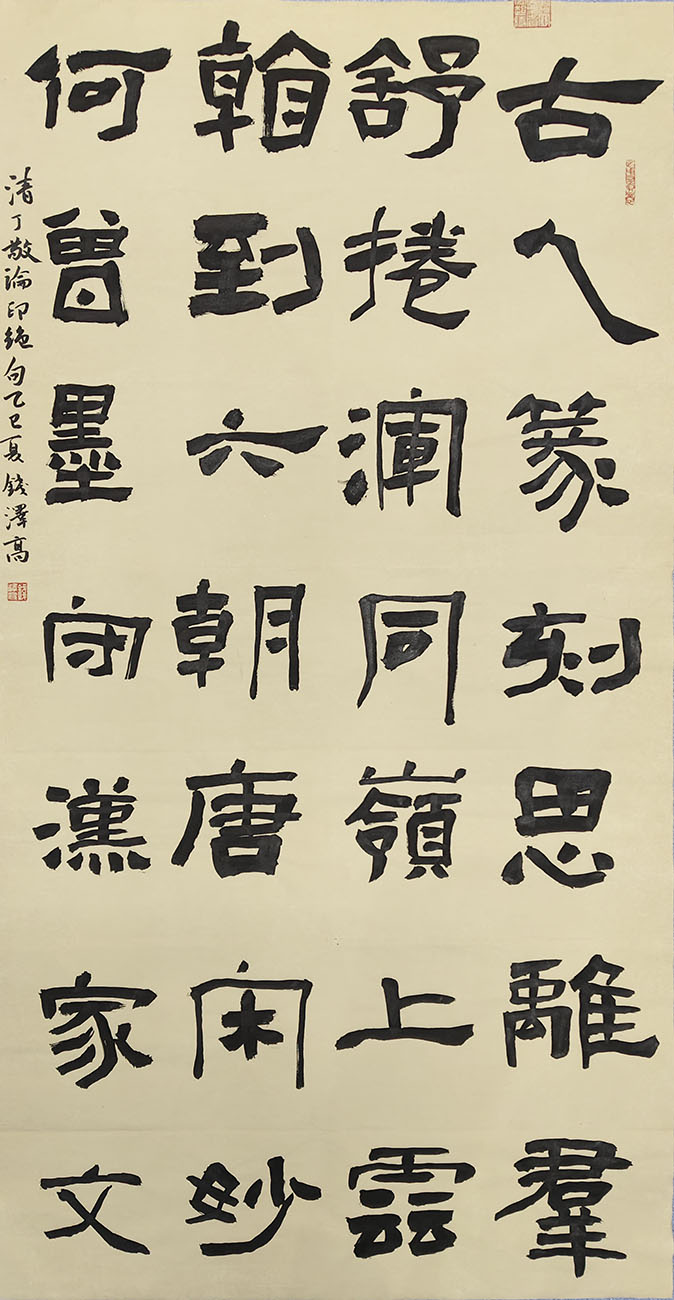 古人篆刻思離羣
舒捲渾同嶺上雲
看到六朝唐宋妙
何曾墨守漢家文
清丁敬論印絕句乙巳夏錢澤高